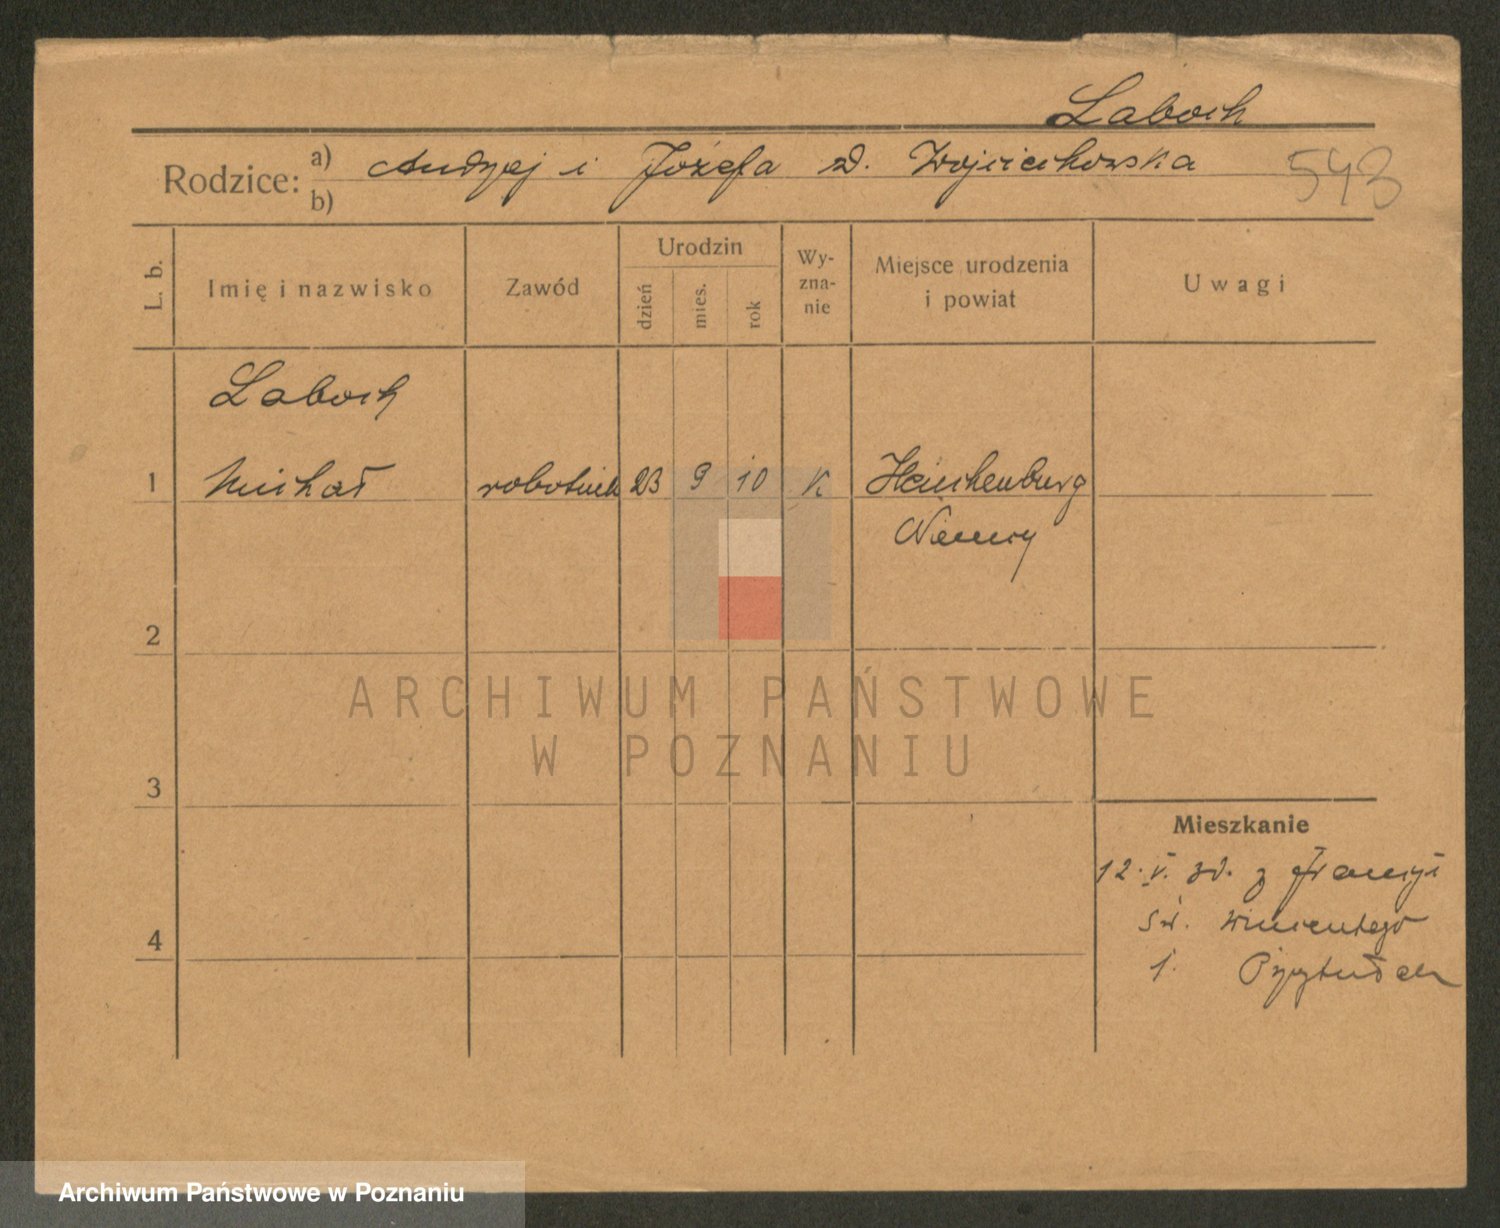 Laboch
Rodzice: a) Andrzej i Józefa z d. Wojciechowska
b)
543
L. b. Imię i nazwisko Zawód Urodzin dzień mies. rok Wyznanie Miejsce urodzenia i powiat Uwagi
Laboch
1 Michał robotnik 23 9 10 K
Niemcy
2
3
4
ARCHIWUM PAŃSTWOWE
W POZNANIU
Mieszkanie
12. V. 30. z Francji
św. Wincentego
1. Przytułek
Archiwum Państwowe w Poznaniu